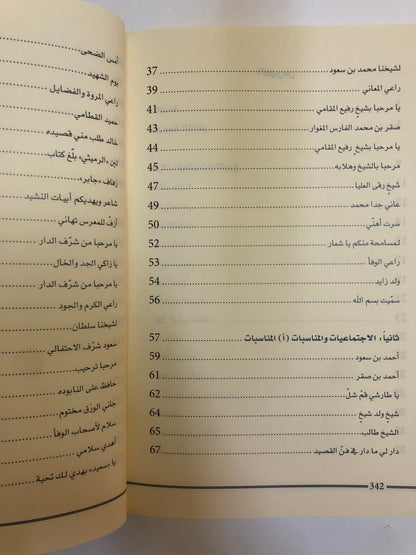 لشيخنا محمد بن سعود 37
راعي المعاني 39
يا مرحبا بشيخ رفيع المقامي 41
صقر بن محمد الفارس المغوار 43
يا مرحبا بشيخ رفيع المقامي 44
مرحبا بالشيخ وهلابه 45
شيخ رقى العليا 47
عاني جدا محمد 49
سرت أهنّي 50
لمسامحة منكم يا شعار 52
راعي الوفا 53
ولد زايد 54
سمّيت بسم الله 56
ثانياً، الاجتماعيات والمناسبات (أ) المناسبات 57
أحمد بن سعود 59
أحمد بن صقر 61
يا طارشي قم شلّ 62
شيخ ولد شيخ 64
الشيخ طالب 65
دار لي ما دار في فنّ القصيد 67
342
أمس الضحى
يوم الشهيد
راعي المروة والفضايل
حميد القطامي
خالد طلب مني قصيده
لين «الرميثي» بلّغ كتاب
زفاف «جابر»
شاعر ويهديكم أبيات النشيد
أزفّ للمعرس تهاني
يا مرحبا من شرّف الدار
يا زاكي الجد والخال
يا مرحبا من شرّف الدار
راعي الكرم والجود
لشيخنا سلطان
سعود شرّف الاحتفالي
مرحبا ترحيب
حافظ على النابوده
جاني الورق مختوم
سلام لأصحاب الوفا
أهدي سلامي
يا «سعيد» بهدي لك تحية